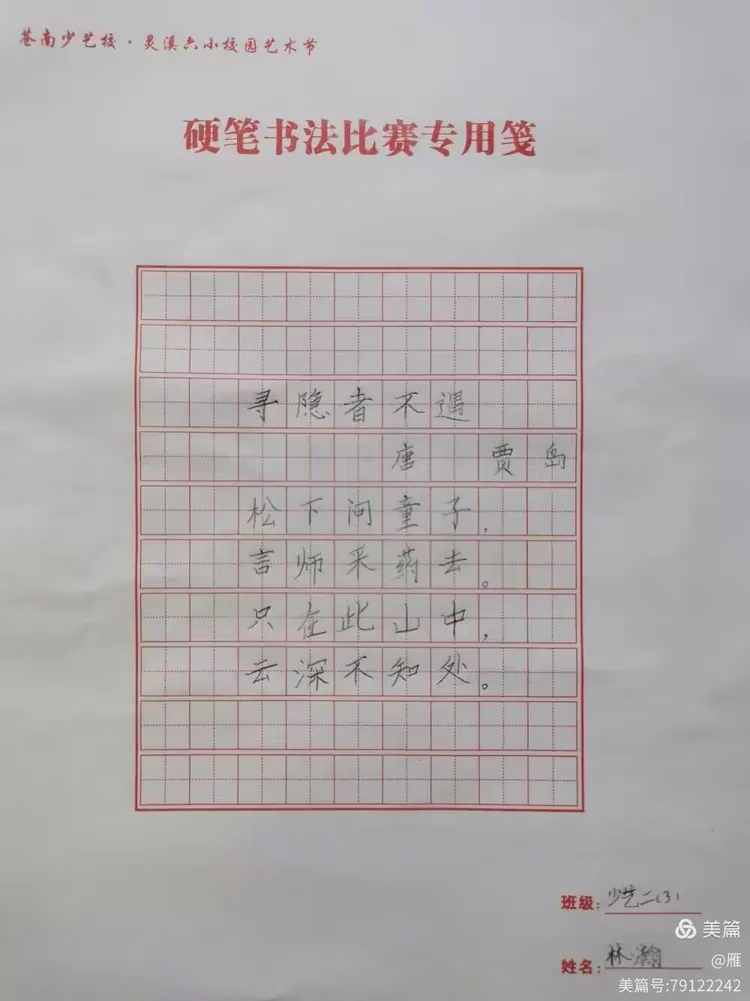 苍南少艺校·灵溪六小校园艺术节
硬笔书法比赛专用笺
寻隐者不遇
唐 贾岛
松下问童子，
言师采药去。
只在此山中，
云深不知处。
班级：少艺二（3）
姓名：林瀚
美篇
@雁
美篇号:79122242